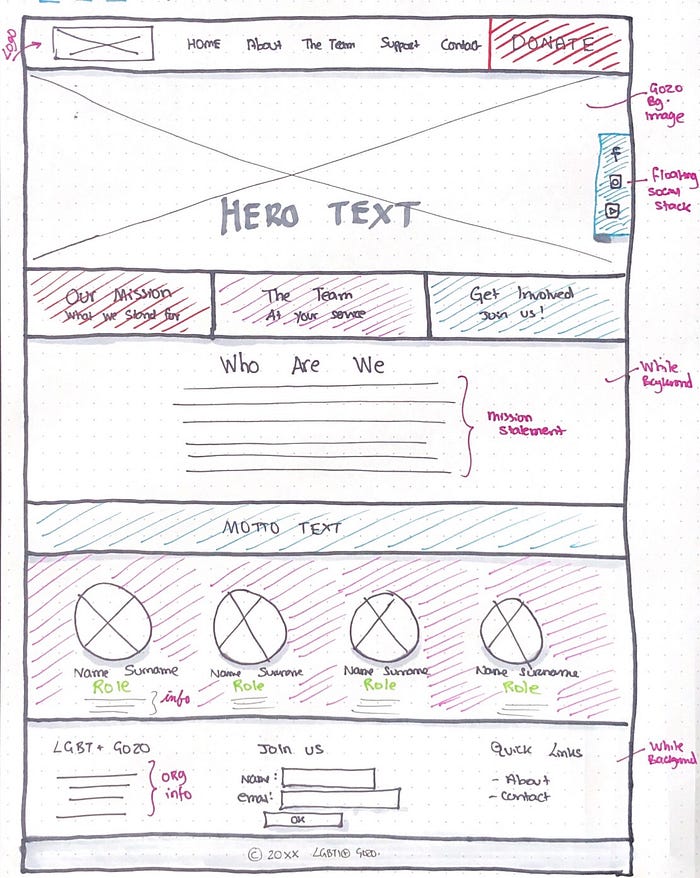 Logo
HOME About The Team Support Contact DONATE
Gozo
Bg.
image
f
Floating
social
stack
HERO TEXT
Our Mission
What we stand for
The Team
At your service
Get Involved
Join us!
Who Are We
White
mission
statement
MOTTO TEXT
Name Surname
Role
info
Name Surname
Role
Name Surname
Role
Name Surname
Role
LGBT+ GOZO
org
info
Join us
Name:
email:
OK
Quick Links
- About
- Contact
White
© 20XX LGBTI+ Gozo.